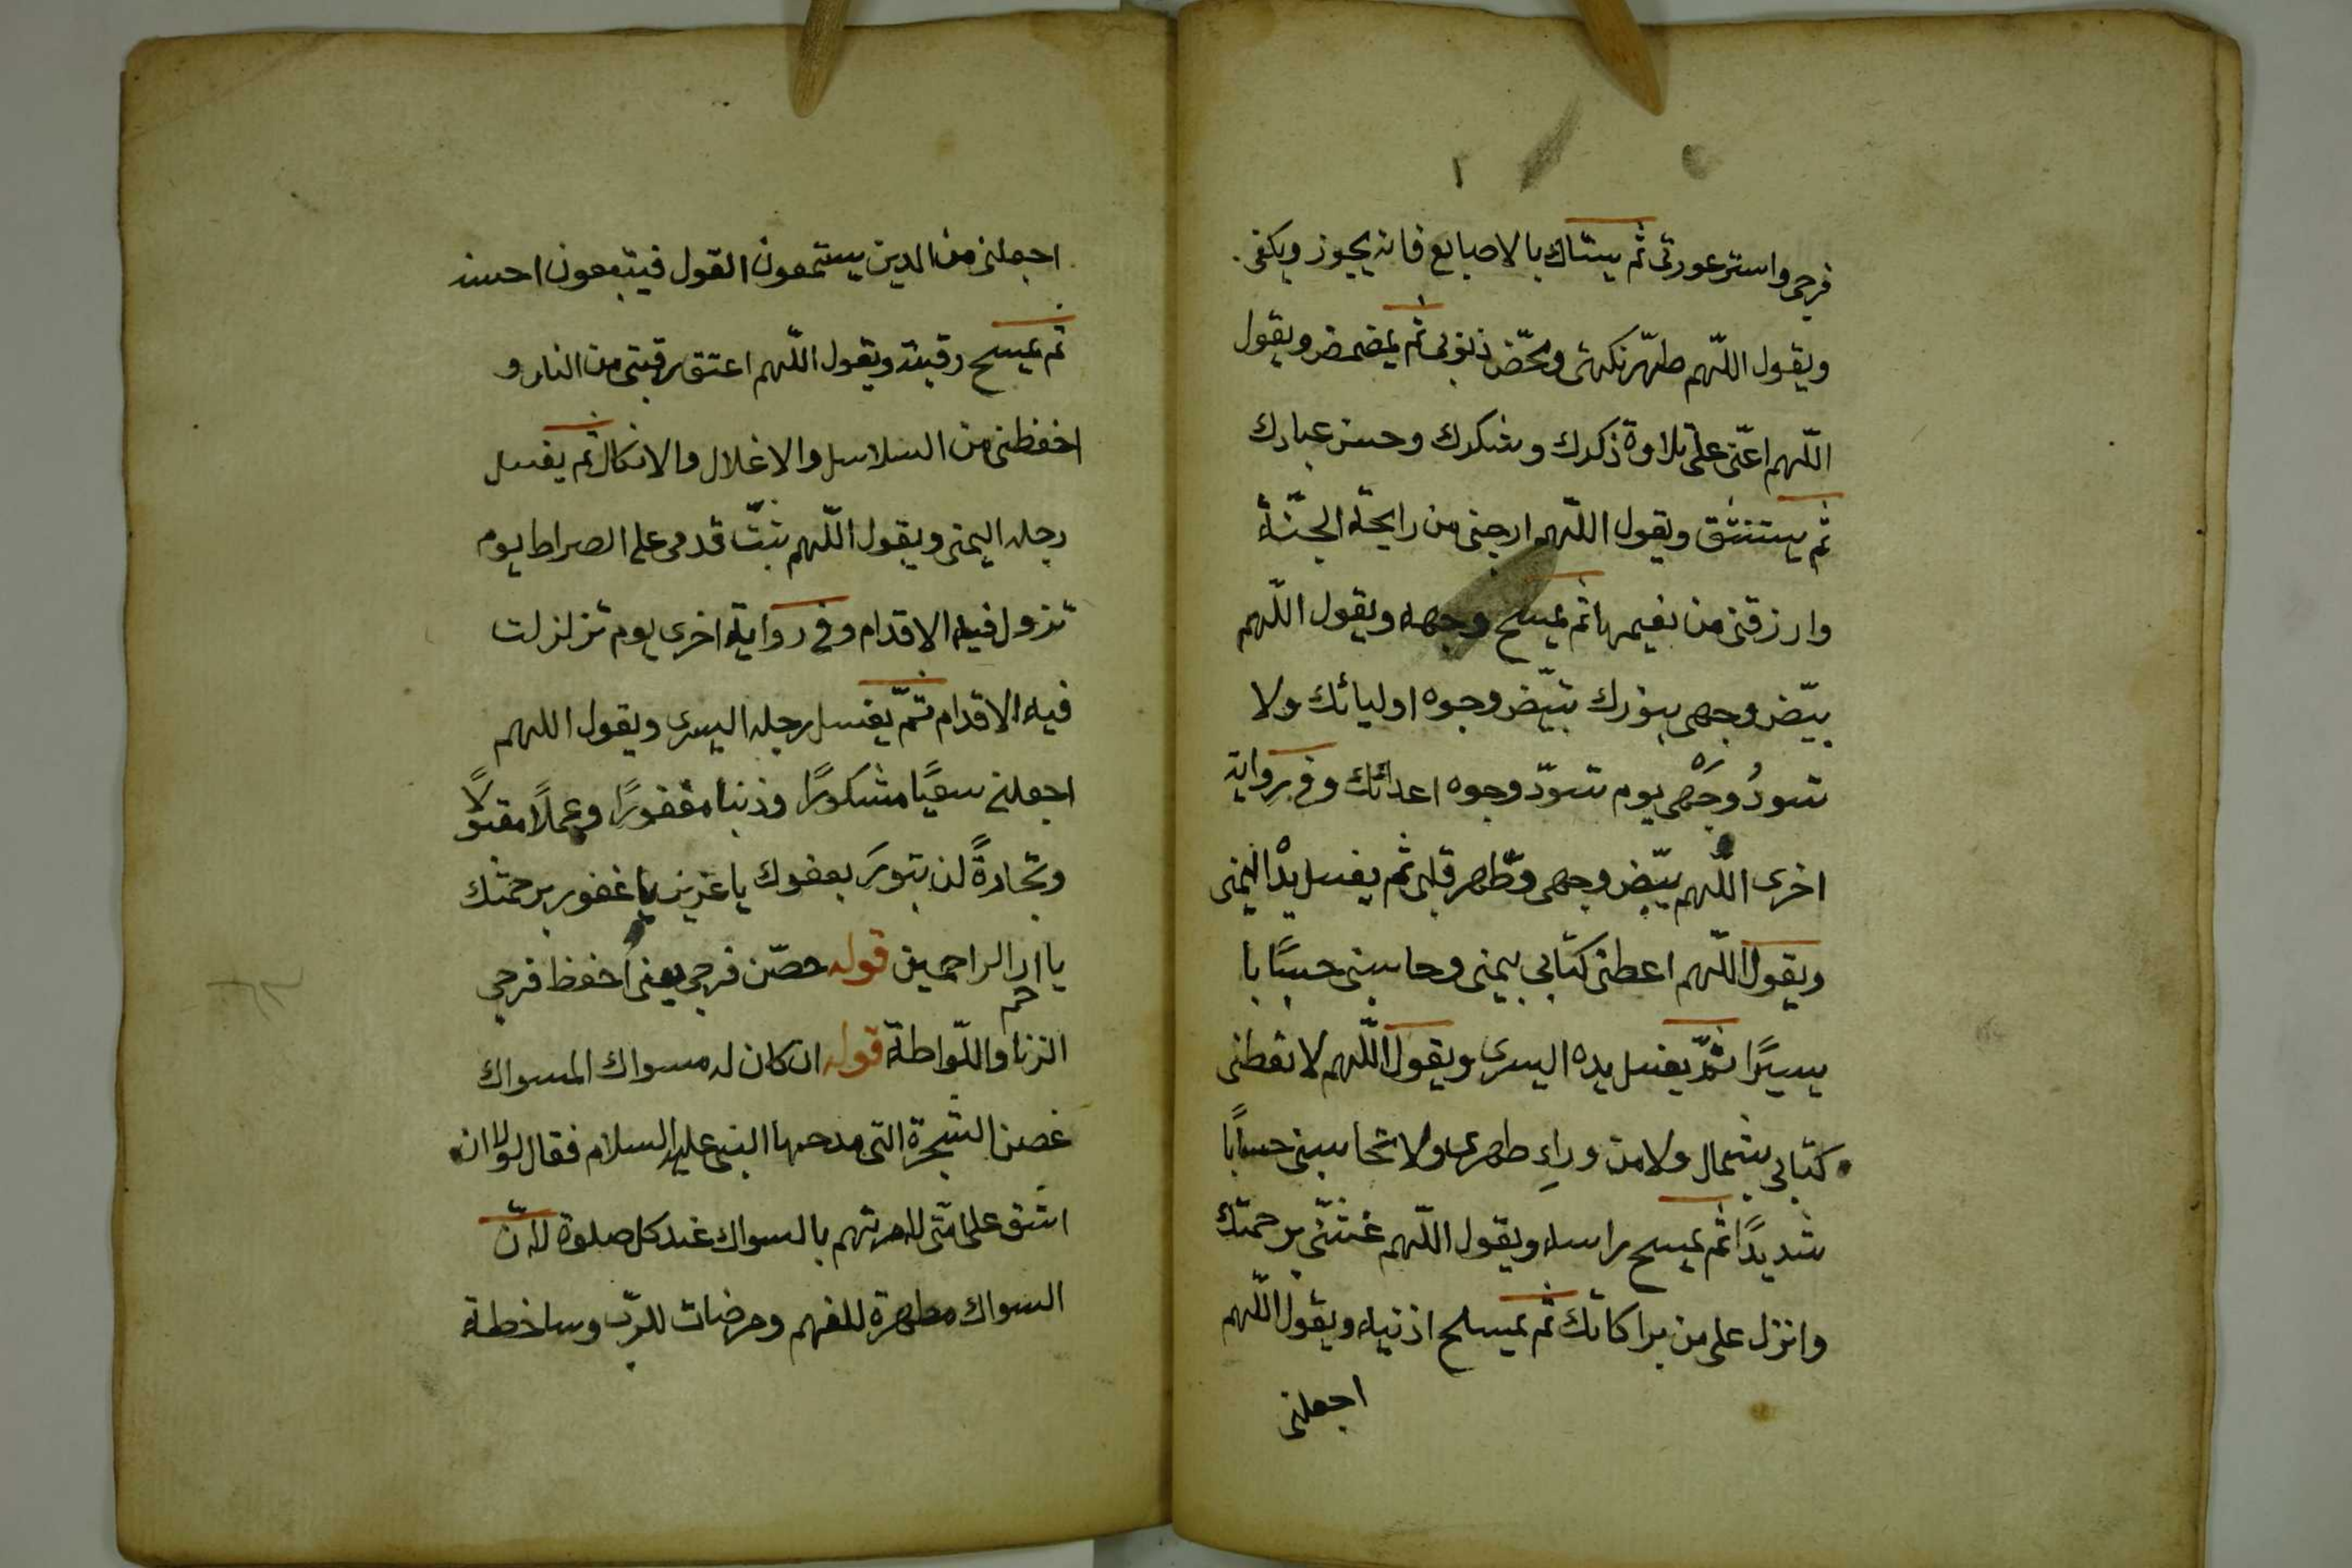 فرجى واستر عورتى ثم يستاك بالاصابع فانه يجوز ويكفى
ويقول اللّهم طهّر نكهتى ومحّض ذنوبى ثم يمضمض ويقول
اللّهم اعنّى على تلاوة ذكرك وشكرك وحسن عبادك
ثم يستنشق ويقول اللّهم ارحنى من رايحة الجنّة
وارزقنى من نعيمها ثم يمسح وجهه ويقول اللّهم
بيّض وجهى بنورك تبيّض وجوه اوليائك ولا
تسودُ وجَهى يوم تسودّ وجوه اعدائك وفى رواية
اخرى اللّهم بيّض وجهى وطّهر قلبى ثم يغسل يدْ اليمنى
ويقول اللّهم اعطنى كتابى بيمنى وحاسبنى حسابا
يسيرًا ثمّ يغسل يده اليسرى ويقول اللّهم لا تعطنى
كتابى بشمال ولا من وراءِ ظهرى ولا تحاسبنى حسابًا
شديدًا ثم يمسح راسه ويقول اللّهم غشّنى برحمتك
وانزل على من براكاتك ثم يمسح اذنيه ويقول اللّهم
اجعلنى
اجعلنى من الدين يستمعون القول فيتبعون احسنه
ثم يمسح رقبته ويقول اللّهم اعتق رقبتى من النار و
اخفظنى من السلاسل والاغلال والانكال ثم يغسل
رجله اليمنى ويقول اللّهم ثبّت قدمى على الصراط يوم
تزول فيه الاقدام وفى رواية اخرى يوم تزلزلت
فيه الاقدام ثمّ يغسل رجله اليسرى ويقول اللهم
اجعلنى سعيًا مشكورًا وذنبا مغفورًا وعملًا مقبولًا
وتجارةً لن تبورَ بعفوك يا عزيز يا غفور برحمتك
يا ارحم الراحمين قوله حصّن فرجى يعنى اخفظ فرجى
الزنا واللّواطة قوله ان كان له مسواك المسواك
غصن الشجرة التى مدحها النبى عليه السلام فقال لولا ان
اشق على امّتى لامرتهم بالسواك عند كل صلوة لانّ
السواك مطهرة للفهم ومرضات للربّ وساخطة